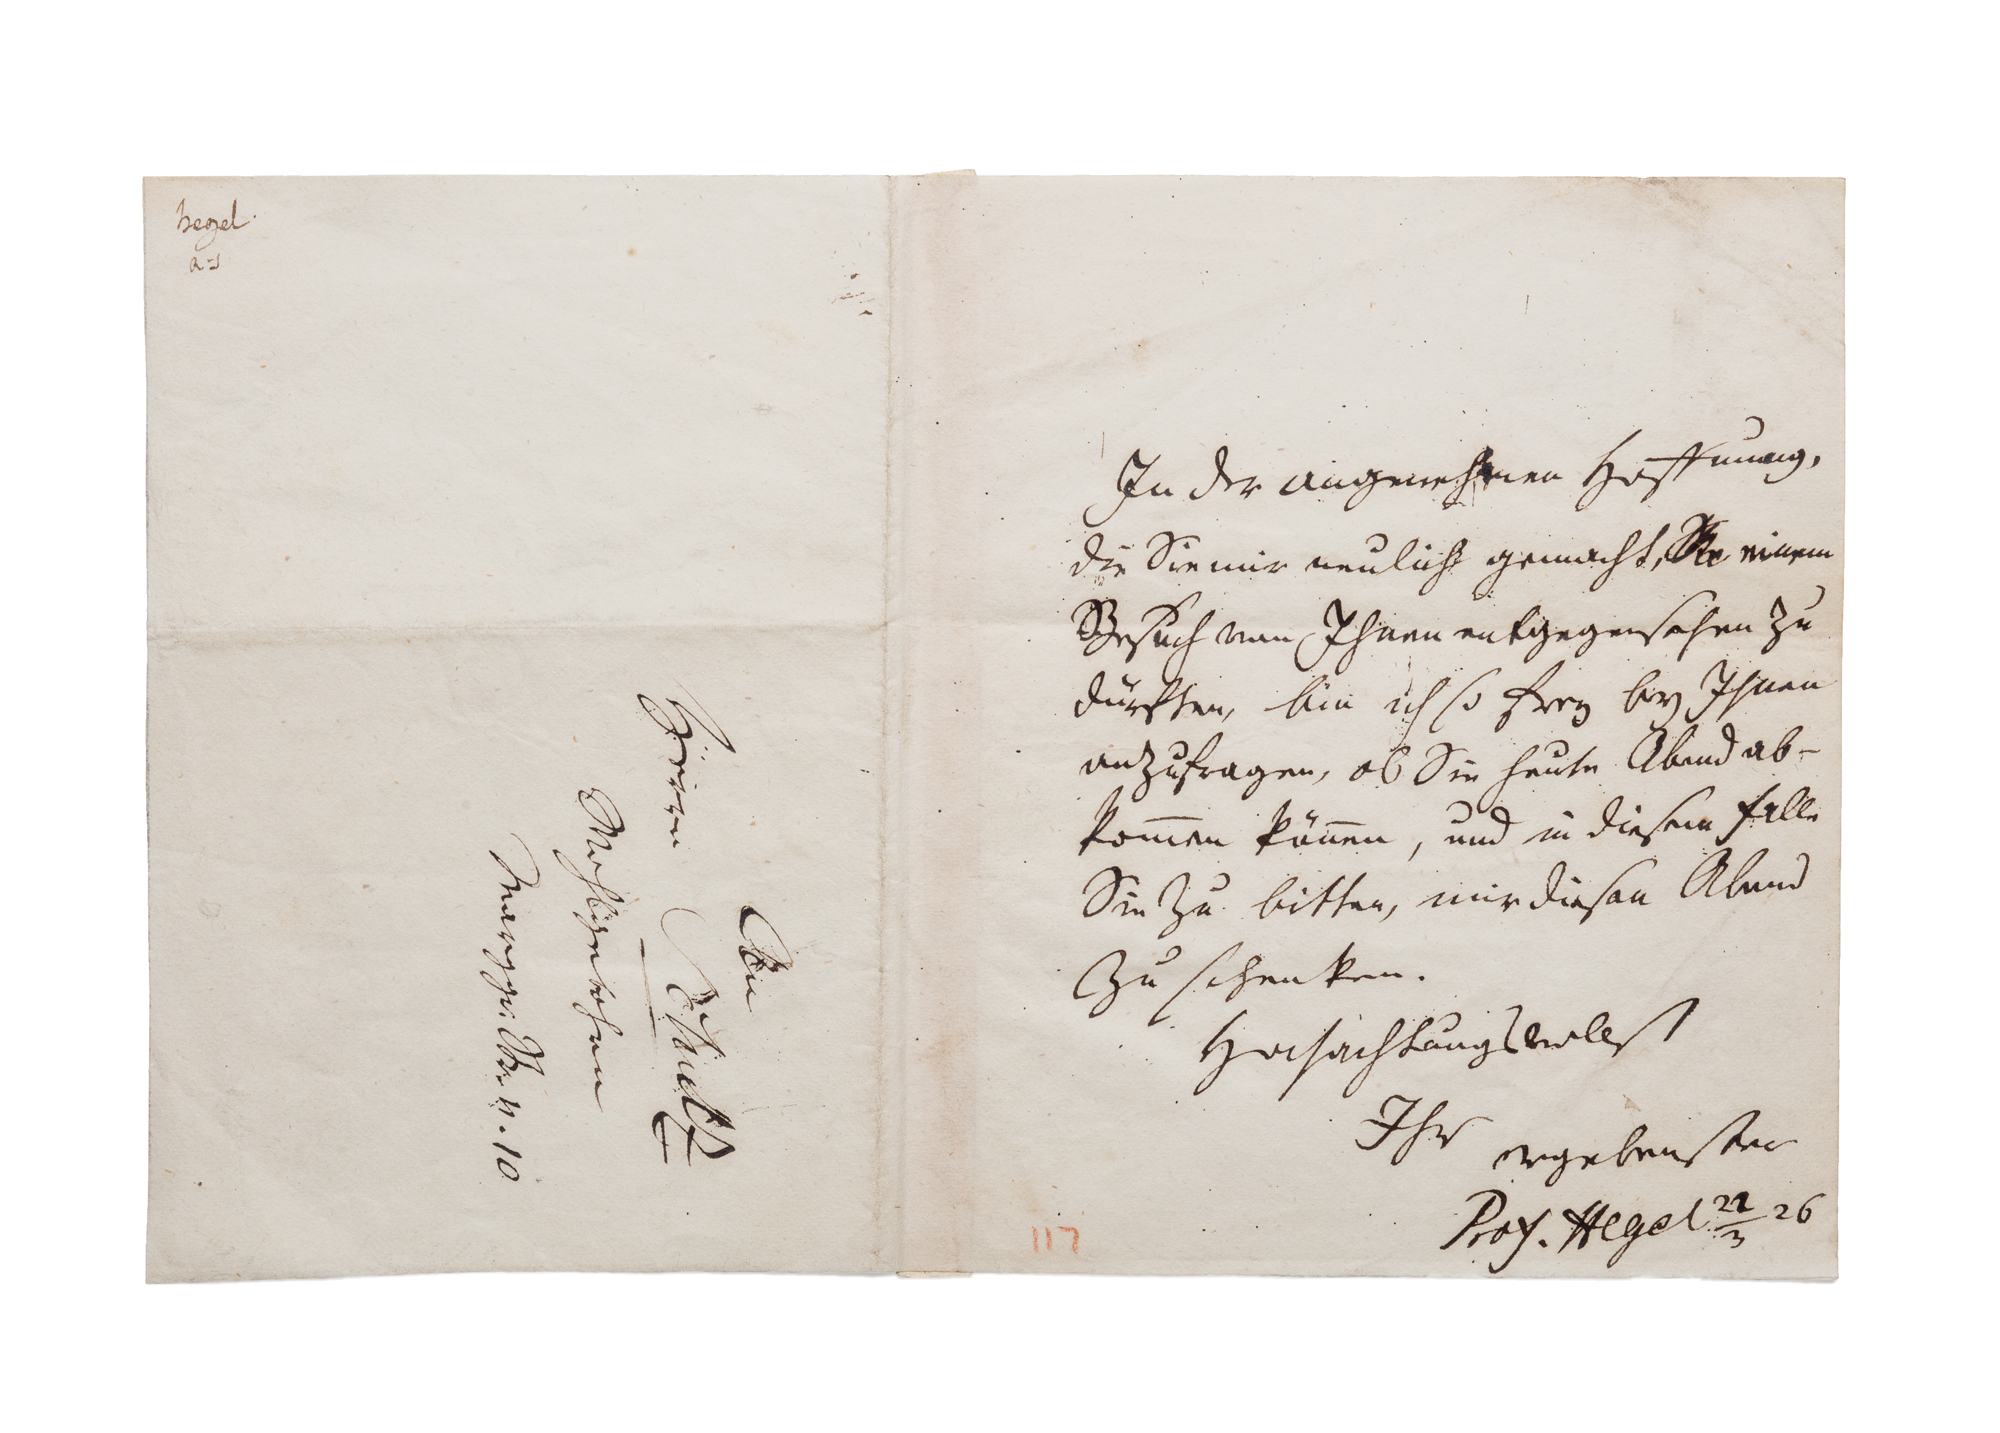 hegel.
An
Herrn
Wohlgebohren
n. 10
In der angenehmen Hoffnung,
die Sie mir neulich gemacht, einem
Besuch von Ihnen entgegensehen zu
dürffen, bin ich so frey bey Ihnen
anzufragen, ob Sie heute Abend ab-
kom̅en kön̅en, und in diesem Falle
Sie zu bitten, mir diesen Abend
zu schenken.
Hochachtungsvollst
Ihr
ergebenster
Prof. Hegel 22/3 26
117